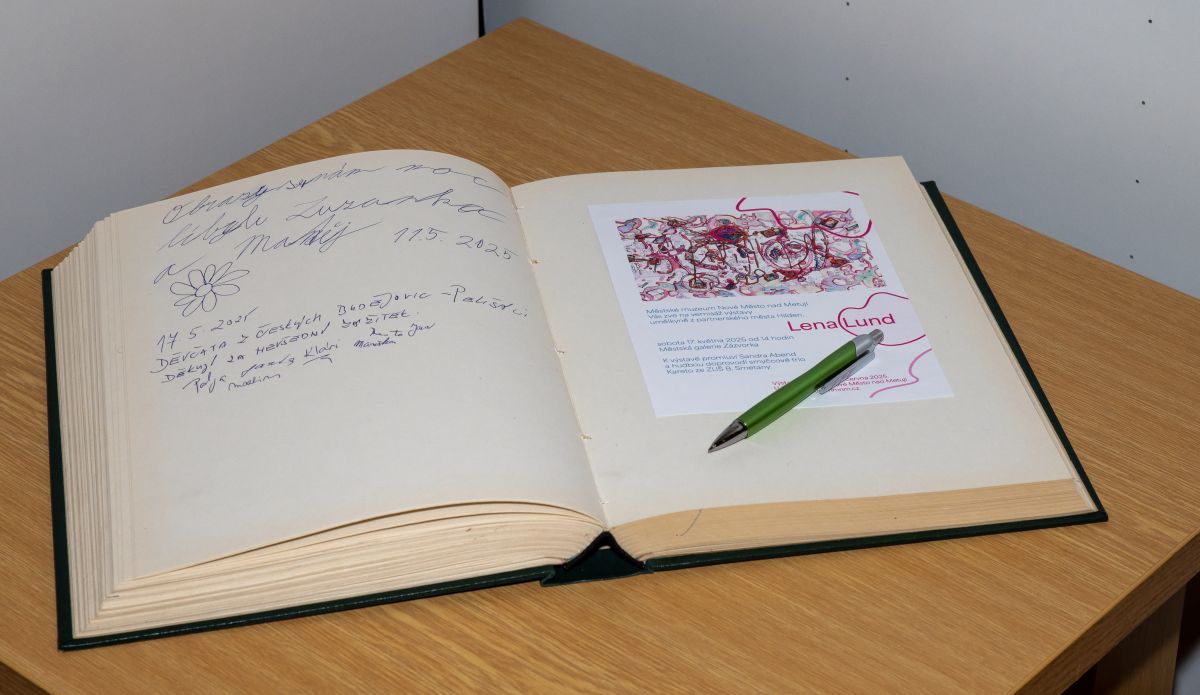 Obrazy se nám moc
líbyli Zuzanka
a Matěj 11.5. 2025
17.5.2025
DĚVČATA Z ČESKÝCH BUDĚJOVIC - PELIŠÁCI
DĚKUJÍ ZA NEVŠEDNÍ ZÁŽITEK.
Klári
Městské muzeum Nové Město nad Metují
Vás zve na vernisáž výstavy
umělkyně z partnerského města Hilden.
Lena Lund
sobota 17. května 2025 od 14 hodin
Městská galerie Zázvorka
K výstavě promluví Sandra Abend
a hudbou doprovodí smyčcové trio
Kareto ze ZUŠ B. Smetany.
června 2025,
Město nad Metují